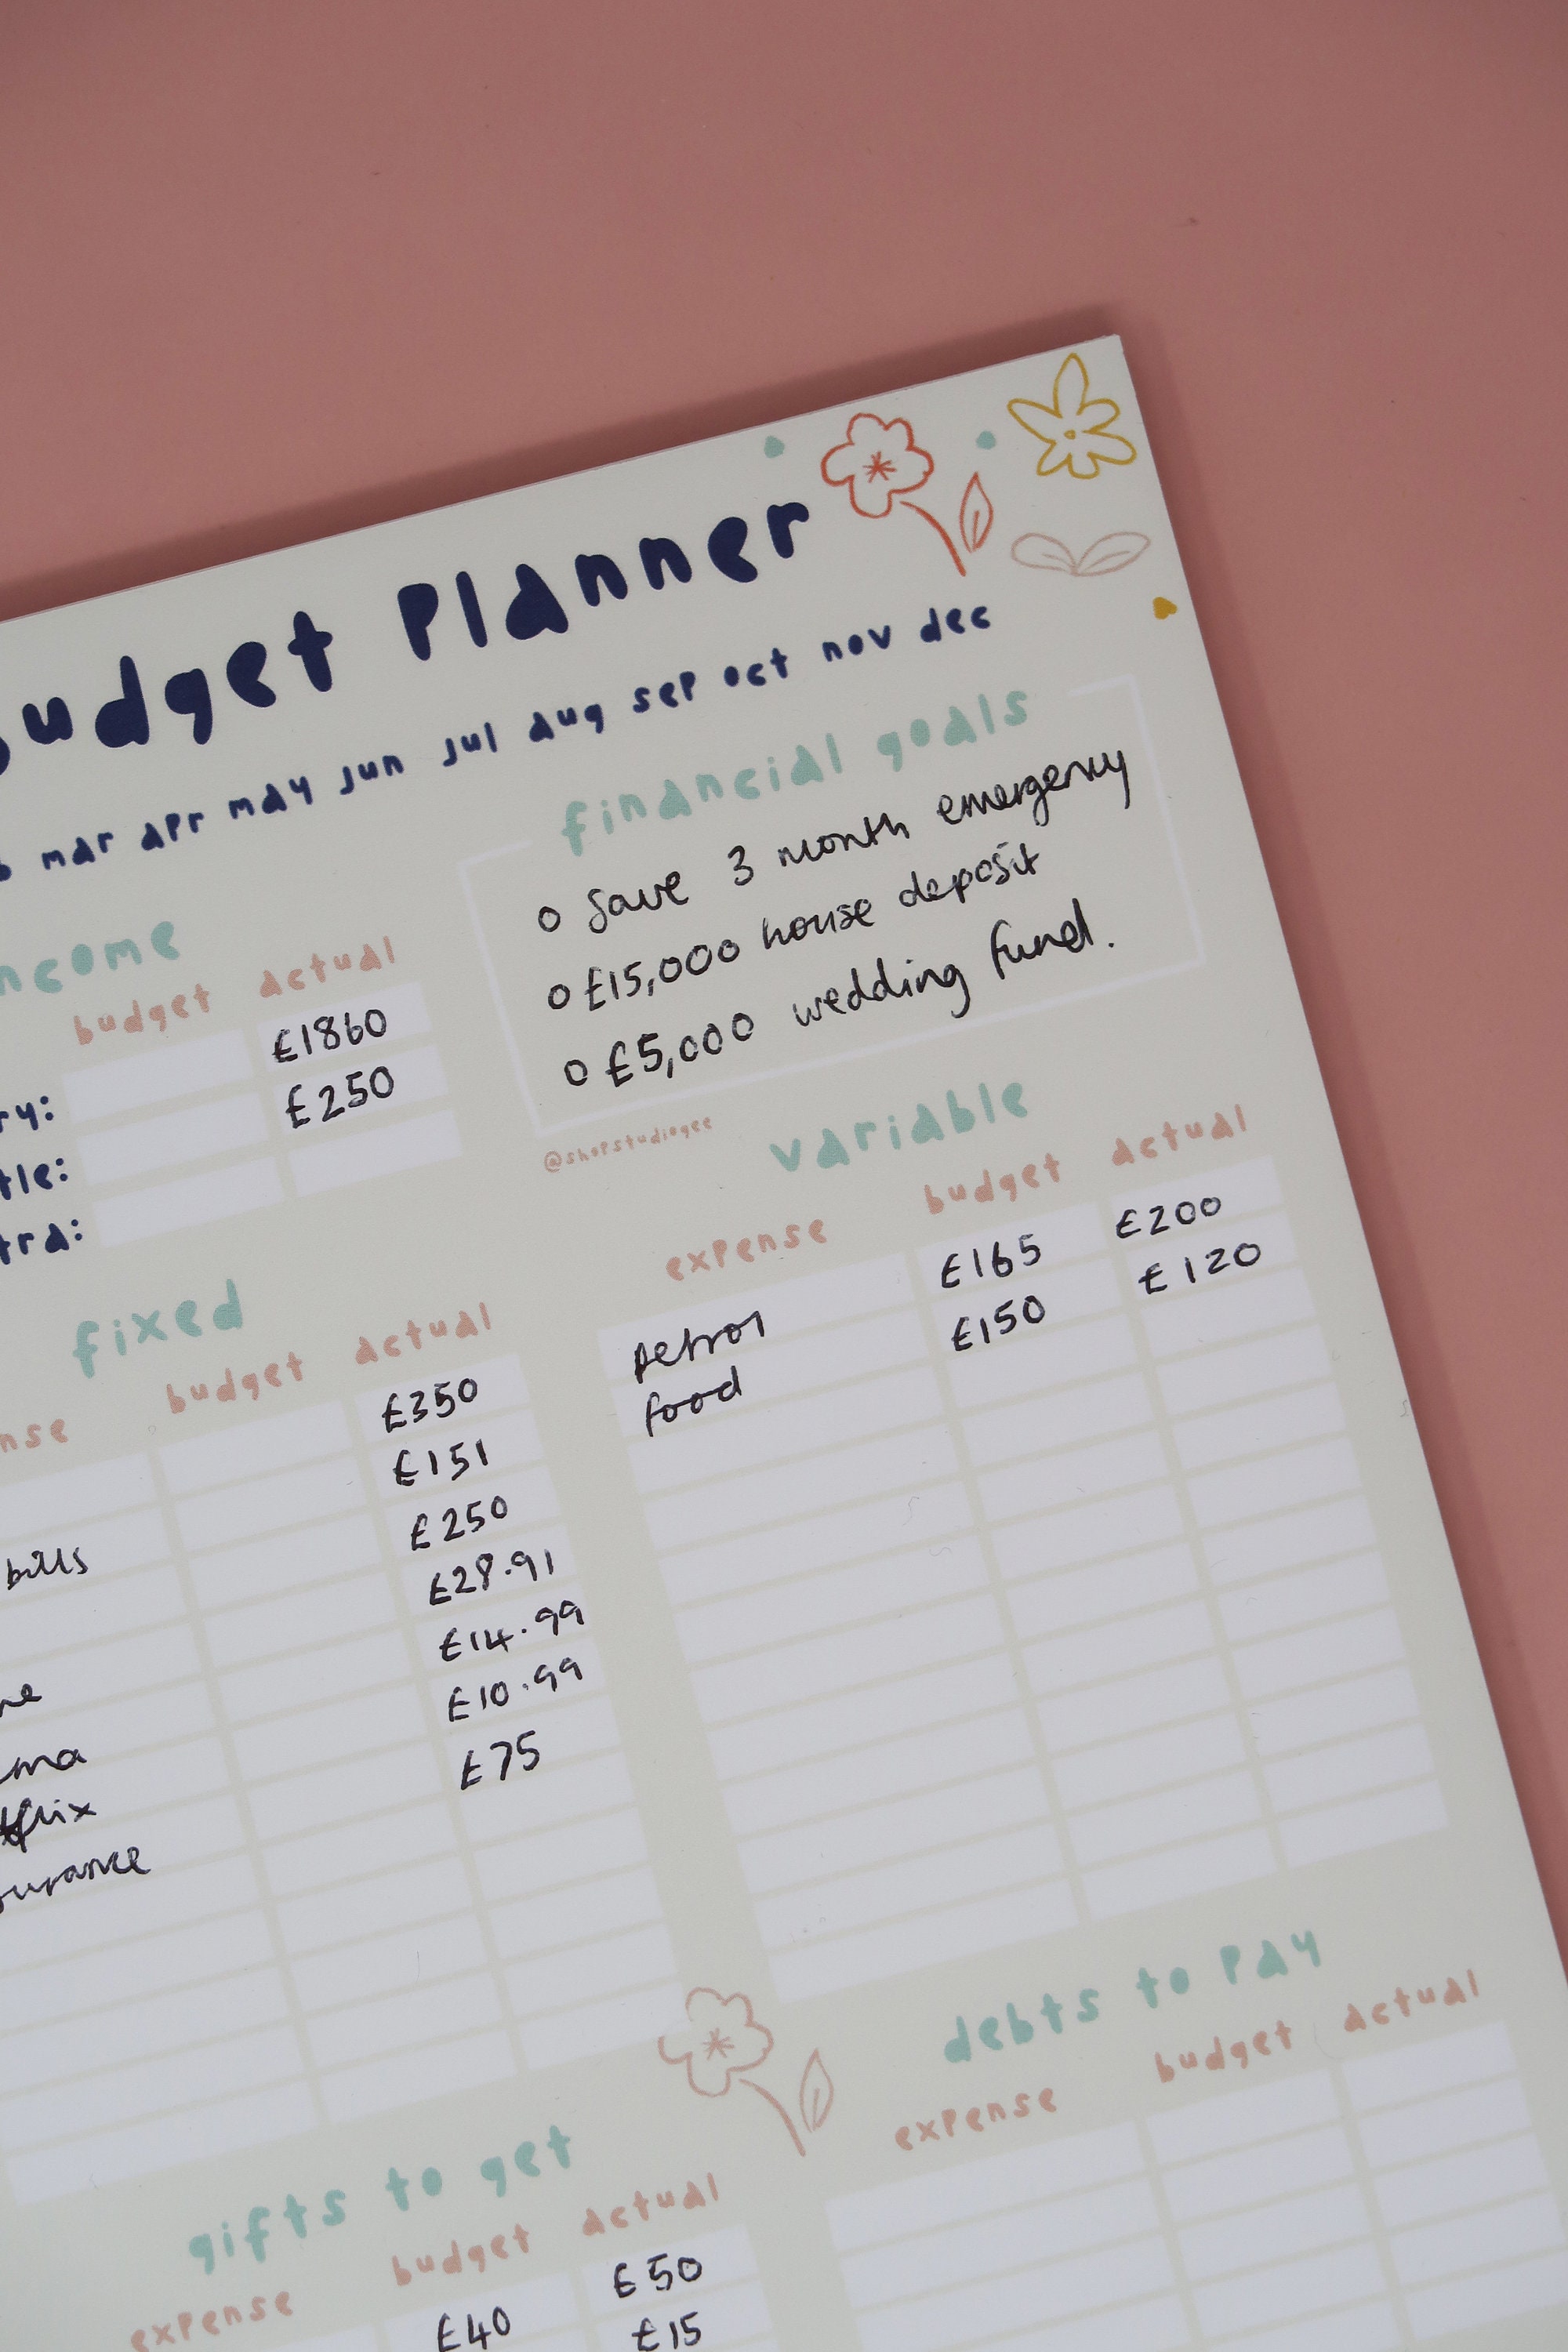 Budget Planner
mar apr may jun jul aug sep oct nov dec
financial goals
o Save 3 month emergency
o £15,000 house deposit
o £5,000 wedding fund.
@shopstudiogee
income
budget actual
£1860
£250
fixed
budget actual
£350
£151
bills £250
£28.91
£14.99
£10.99
£75
variable
expense budget actual
petrol £165 £200
food £150 £120
debts to pay
expense budget actual
gifts to get
expense budget actual
£40 £50
£15